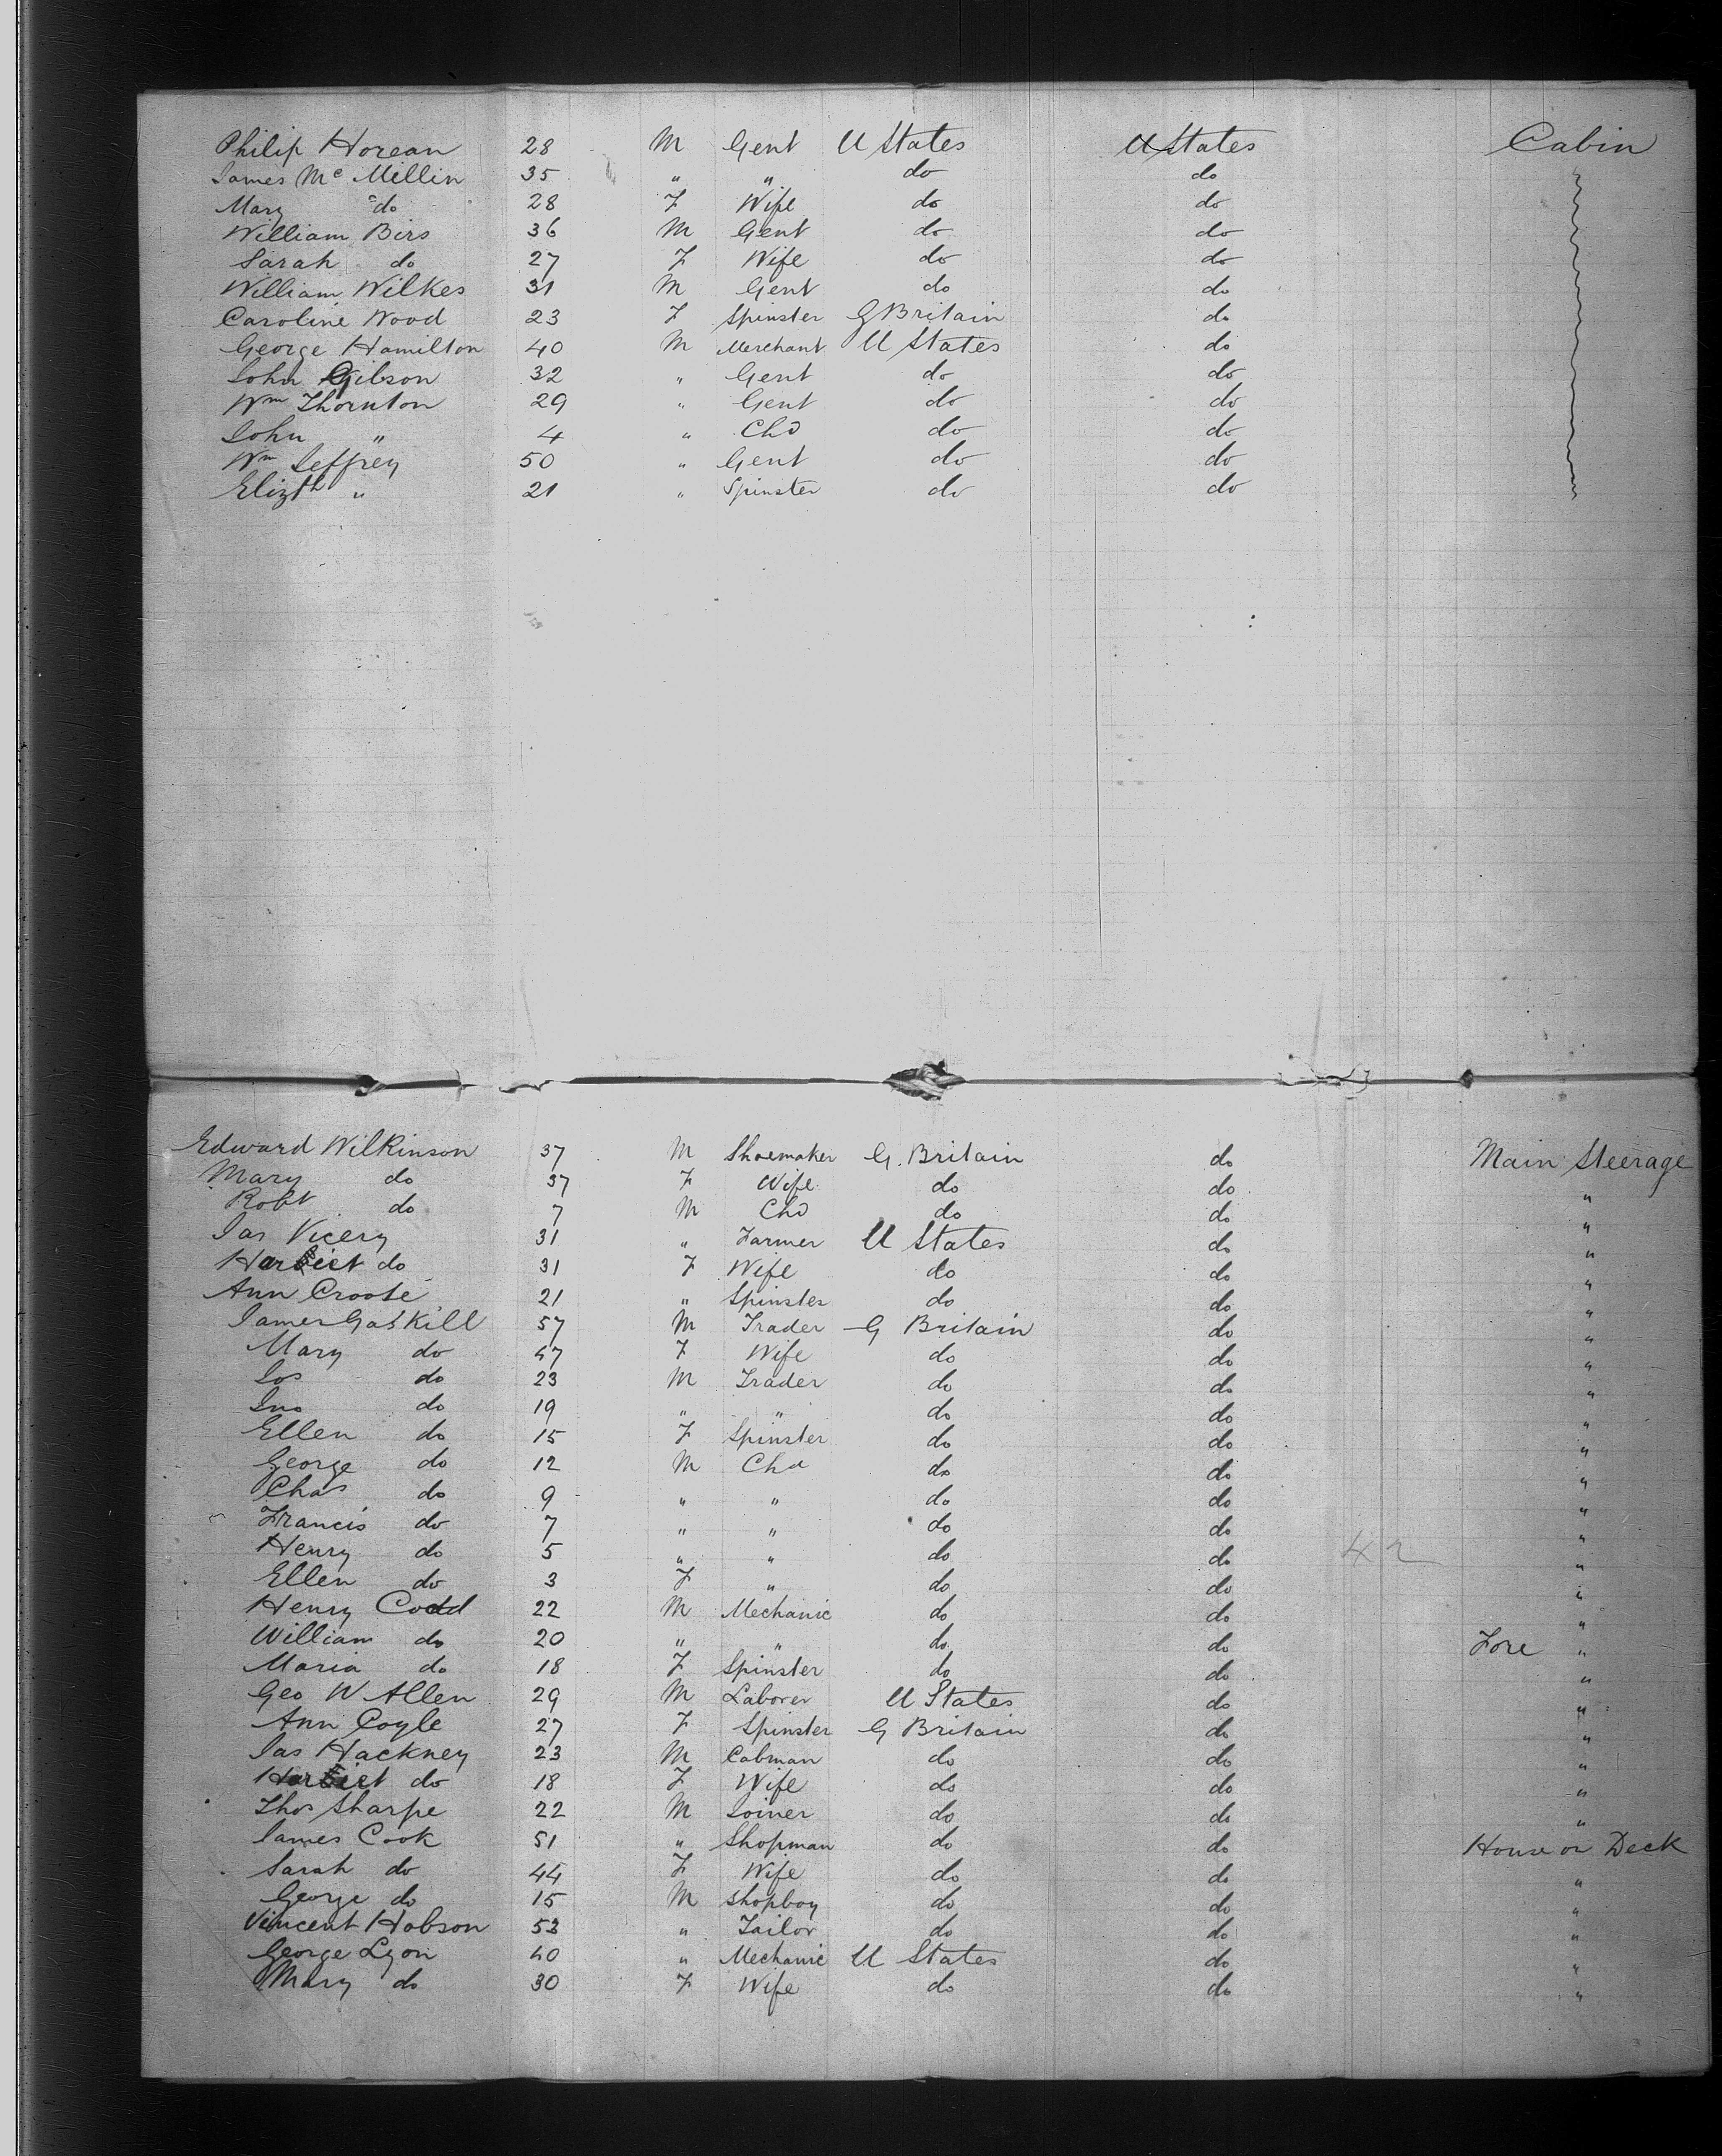 Philip Horean 28 M Gent U States U States Cabin
James Mc Mellin 35 " " do do
Mary do 28 F Wife do do
William Birs 36 M Gent do do
Sarah do 27 F Wife do do
William Wilkes 31 M Gent do do
Caroline Wood 23 F Spinster G Britain do
George Hamilton 40 M Merchant U States do
John Gibson 32 " Gent do do
Wm Thornton 29 " Gent do do
John " 4 " Chd do do
Wm Jeffrey 50 " Gent do do
Elizth " 21 " Spinster do do
Edward Wilkinson 37 M Shoemaker G. Britain do Main Steerage
Mary do 37 F Wife do do "
Robt do 7 M Chd do do "
Jas Vicery 31 " Farmer U States do "
Harriet do 31 F Wife do do "
Ann Croote 21 " Spinster do do "
James Gaskill 57 M Trader G Britain do "
Mary do 47 F Wife do do "
Jos do 23 M Trader do do "
Jno do 19 " " do do "
Ellen do 15 F Spinster do do "
George do 12 M Chd do do "
Chas do 9 " " do do "
Francis do 7 " " do do "
Henry do 5 " " do do 42 "
Ellen do 3 F " do do "
Henry Codd 22 M Mechanic do do "
William do 20 " " do do Fore "
Maria do 18 F Spinster do do "
Geo W Allen 29 M Laborer U States do "
Ann Coyle 27 F Spinster G Britain do "
Jas Hackney 23 M Cabman do do "
Harriet do 18 F Wife do do "
Thos Sharpe 22 M Joiner do do "
James Cook 51 " Shopman do do House on Deck
Sarah do 44 F Wife do do "
George do 15 M Shopboy do do "
Vincent Hobson 53 " Tailor do do "
George Lyon 40 " Mechanic U States do "
Mary do 30 F Wife do do "